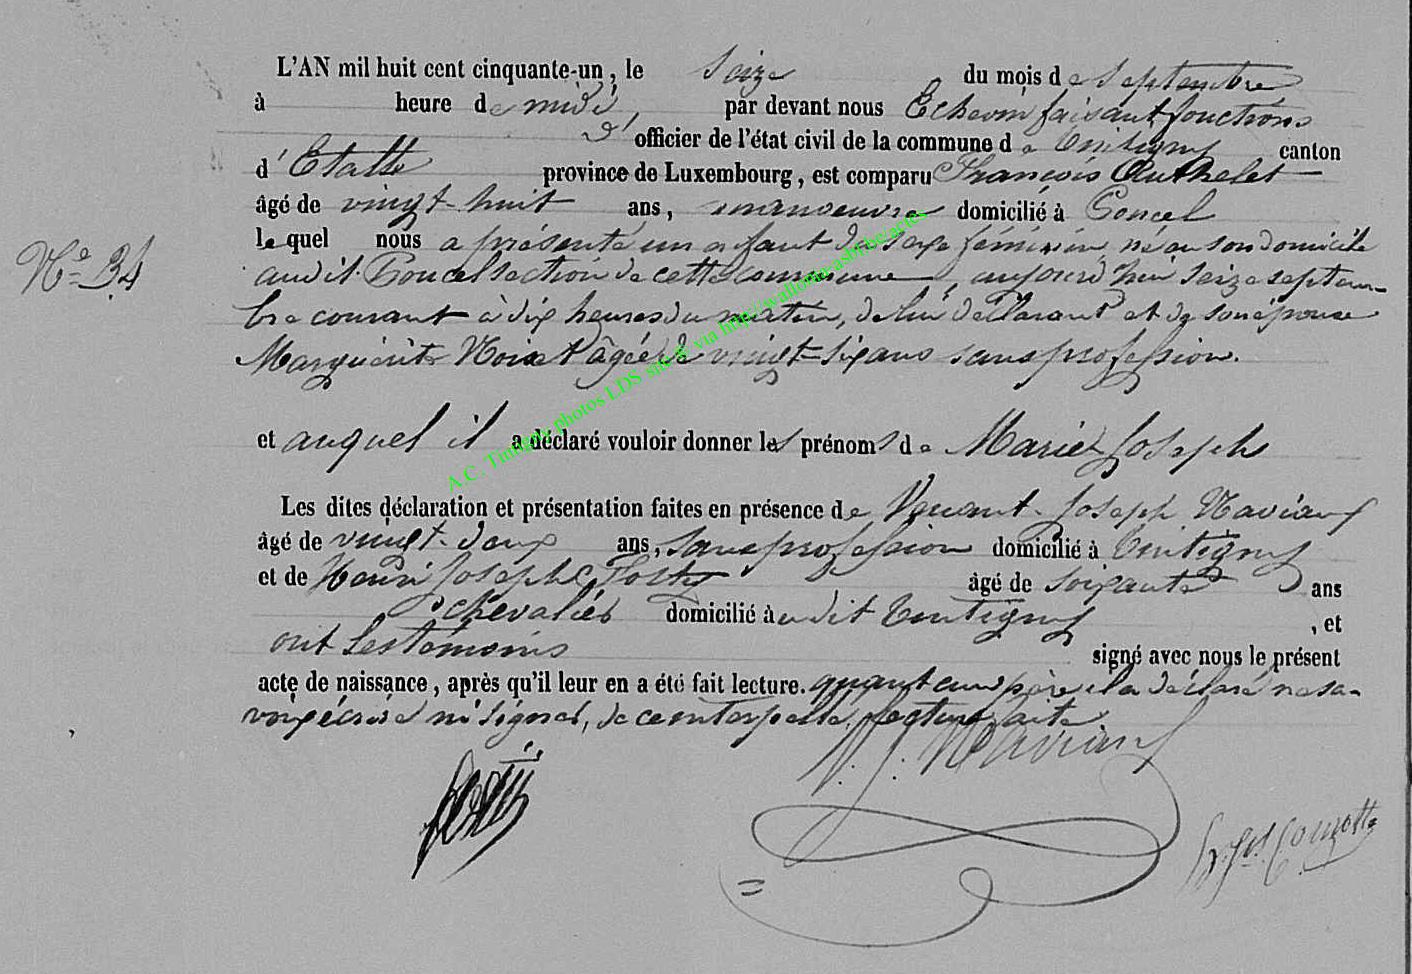 L'AN mil huit cent cinquante-un, le Seize du mois de Septembre
à heure de midi, par devant nous Echevin faisant fonctions
d' officier de l'état civil de la commune de Tintigny canton
d'Etalle province de Luxembourg, est comparu François Authelet
âgé de vingt-huit ans, manoeuvre domicilié à Poncel
lequel nous a présenté un enfant du sexe féminin, né en son domicile
N° 34
audit Poncel section de cette commune, aujourd'hui seize septem-
bre courant à dix heures du matin, de lui déclarant et de son épouse
Marguérite âgée de vingt-six ans sans profession.
et auquel il a déclaré vouloir donner les prénoms de Marie Joseph
Les dites déclaration et présentation faites en présence de Vincent Joseph
âgé de vingt-deux ans, sans profession domicilié à Tintigny
et de Henri Joseph âgé de soixante ans
chevalier domicilié audit Tintigny, et
ont les témoins signé avec nous le présent
acte de naissance, après qu'il leur en a été fait lecture. quant au père il a déclaré ne sa-
voir écrire ni signer, de ce interpellé, lecture faite
V. J.
A.C. Tintigny photos LDS site & via http://wallonia-asbl.be/actes